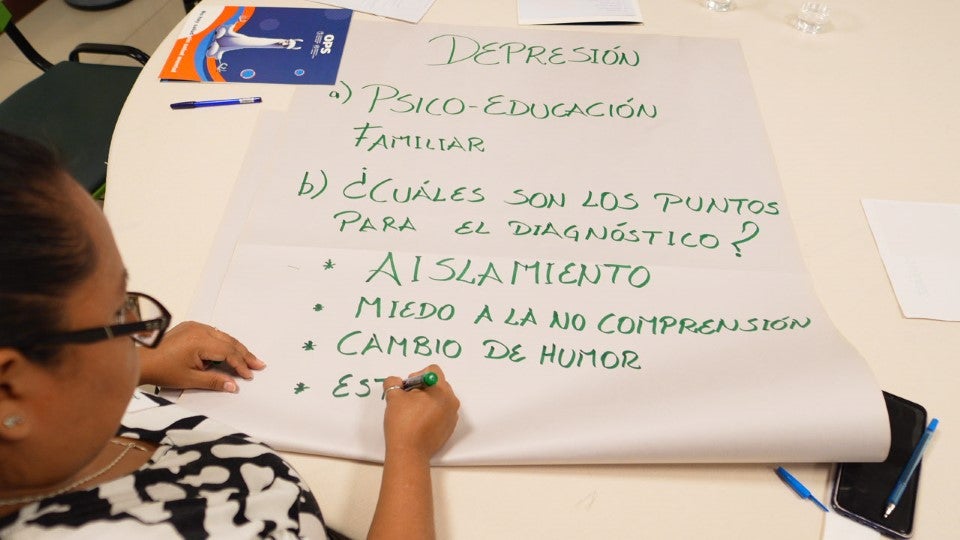 DEPRESIÓN
a) PSICO-EDUCACIÓN
FAMILIAR
b) ¿CUÁLES SON LOS PUNTOS
PARA EL DIAGNÓSTICO?
* AISLAMIENTO
* MIEDO A LA NO COMPRENSIÓN
* CAMBIO DE HUMOR
* EST
OPS